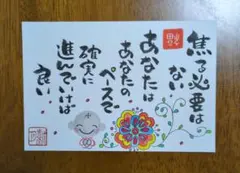 焦る必要は
ない
あなたは
あなたの
ペースで
確実に
進んでいけば
良い